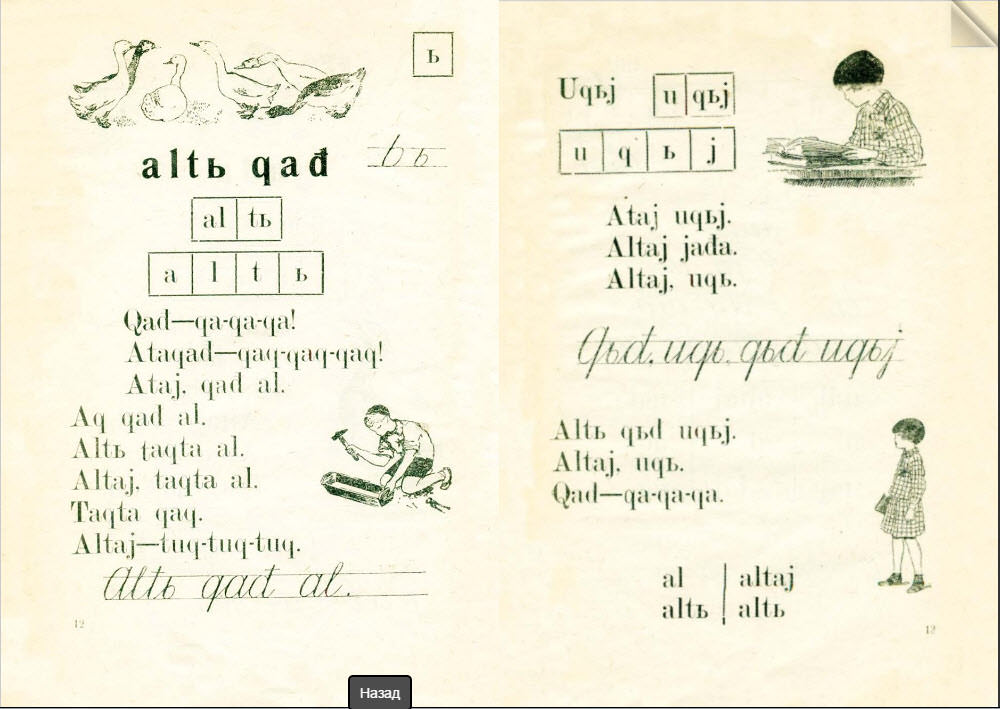 ь
altь qađ
Ь ь
al tь
a l t ь
Qađ—qa-qa-qa!
Ataqađ—qaq-qaq-qaq!
Ataj, qađ al.
Aq qađ al.
Altь taqta al.
Altaj, taqta al.
Taqta qaq.
Altaj—tuq-tuq-tuq.
Altь qađ al.
12
Uqьj
u qьj
u q ь j
Ataj uqьj.
Altaj jađa.
Altaj, uqь.
Qьđ, uqь, qьđ uqьj
Altь qьđ uqьj.
Altaj, uqь.
Qađ—qa-qa-qa.
al altaj
altь altь
12
Назад